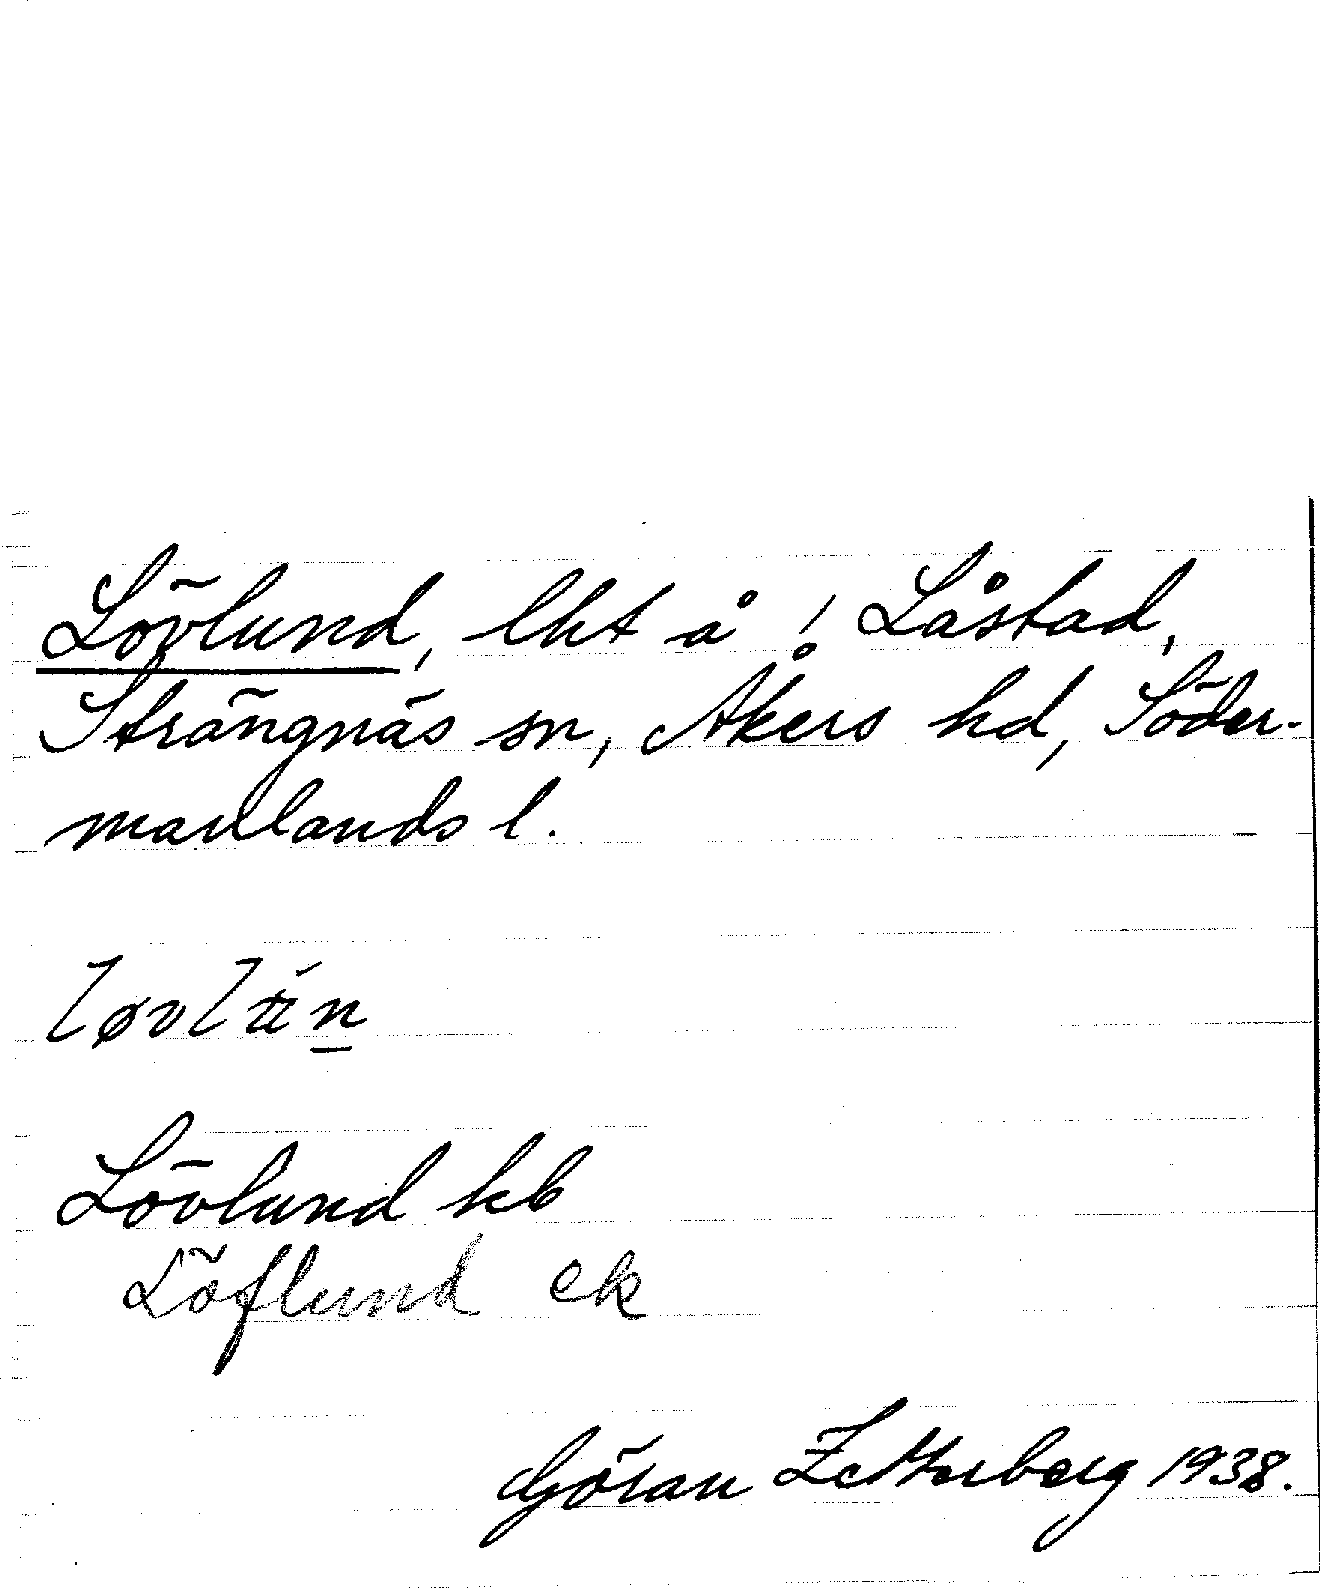 Lövlund, lht å ! Låstad,
Strängnäs sn, Åkers hd, Söder-
manlands l.
Lövlund kb
Löflund ek
Göran Zetterberg 1938.